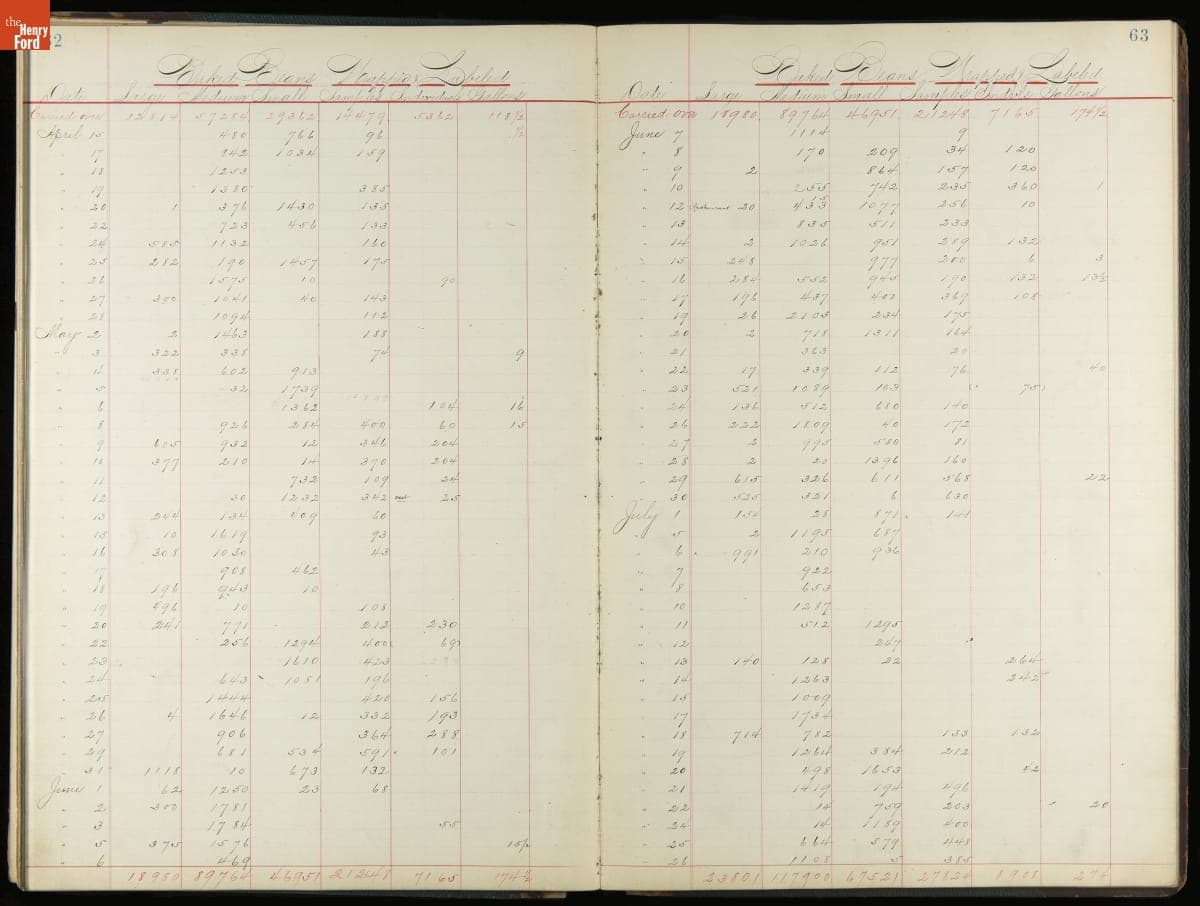 the
Henry
Ford
Baked Beans Wrapped & Labeled
Date Large Medium Small Samples Individuals Gallons
Carried over 12814 57284 29362 14479 5362 118½
April 15 480 766 96 ½
" 17 842 1034 159
" 18 1253
" 19 1380 385
" 20 1 376 1430 135
" 22 723 456 133
" 24 585 1132 160
" 25 282 190 1457 175
" 26 1575 10 90
" 27 300 1041 40 143
" 28 1094 112
May 2 2 1463 188
" 3 322 338 74 9
" 4 338 602 913
" 5 32 1739
" 6 1362 104 16
" 8 926 284 400 60 15
" 9 605 932 12 346 204
" 10 377 210 14 370 204
" 11 732 109 24
" 12 30 1232 342 25
" 13 244 134 409 60
" 15 10 1619 93
" 16 308 1030 43
" 17 908 462
" 18 196 943 10
" 19 596 10 108
" 20 241 771 212 230
" 22 256 1294 400 69
" 23 1610 423
" 24 643 1081 196
" 25 1444 420 156
" 26 4 1646 12 332 193
" 27 906 364 288
" 29 681 534 591 101
" 31 1118 10 673 132
June 1 62 1250 23 68
" 2 300 1781
" 3 1784 55
" 5 375 1576 15½
" 6 469
18980 89764 46951 21248 7165 174½
63
Baked Beans Wrapped & Labeled
Date Large Medium Small Samples Individ's Gallons
Carried over 18980 89764 46951 21248 7165 174½
June 7 1114 9
" 8 170 209 34 120
" 9 2 864 157 120
" 10 255 742 235 360 1
" 12 20 433 1077 256 10
" 13 835 511 233
" 14 2 1026 951 289 132
" 15 248 977 200 6 3
" 16 284 552 945 190 132 13½
" 17 196 437 400 369 108
" 19 26 2103 234 175
" 20 2 718 1311 164
" 21 363 20
" 22 17 339 112 76 40
" 23 521 1089 103 75
" 24 136 512 680 140
" 26 222 1809 40 172
" 27 2 995 580 81
" 28 2 20 1396 160
" 29 615 326 611 568 22
" 30 525 321 6 630
July 1 154 28 871
" 5 2 1195 687
" 6 991 210 936
" 7 922
" 8 653
" 10 1287
" 11 512 1295
" 12 247
" 13 140 128 22 264
" 14 1263 242
" 15 1009
" 17 1734
" 18 714 782 133 132
" 19 1264 384 212
" 20 498 1653 42
" 21 1419 194 496
" 22 14 759 203 20
" 24 14 1189 400
" 25 664 579 448
" 26 1108 5 385
23801 117900 67521 27824 8908